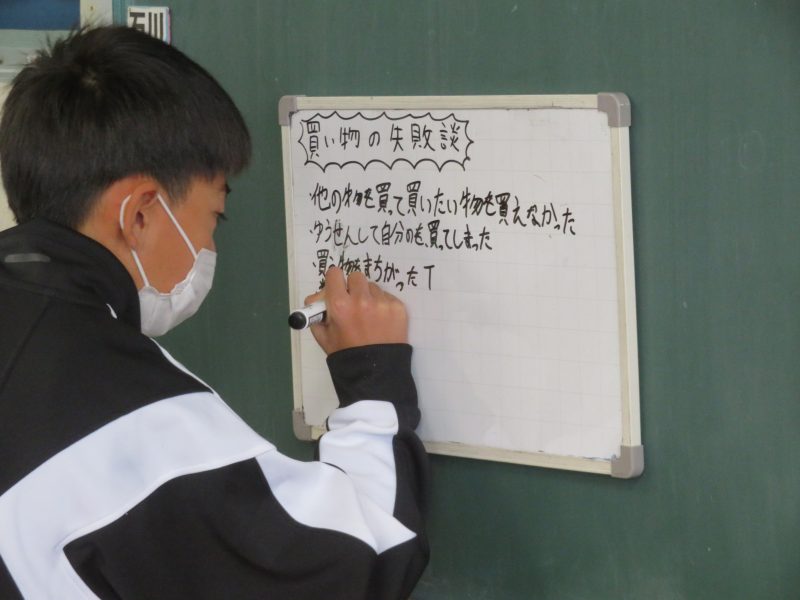 石川
買い物の失敗談
・他の物を買って買いたい物を買えなかった
・ゆうせんして自分のを買ってしまった
・買う物をまちがったT